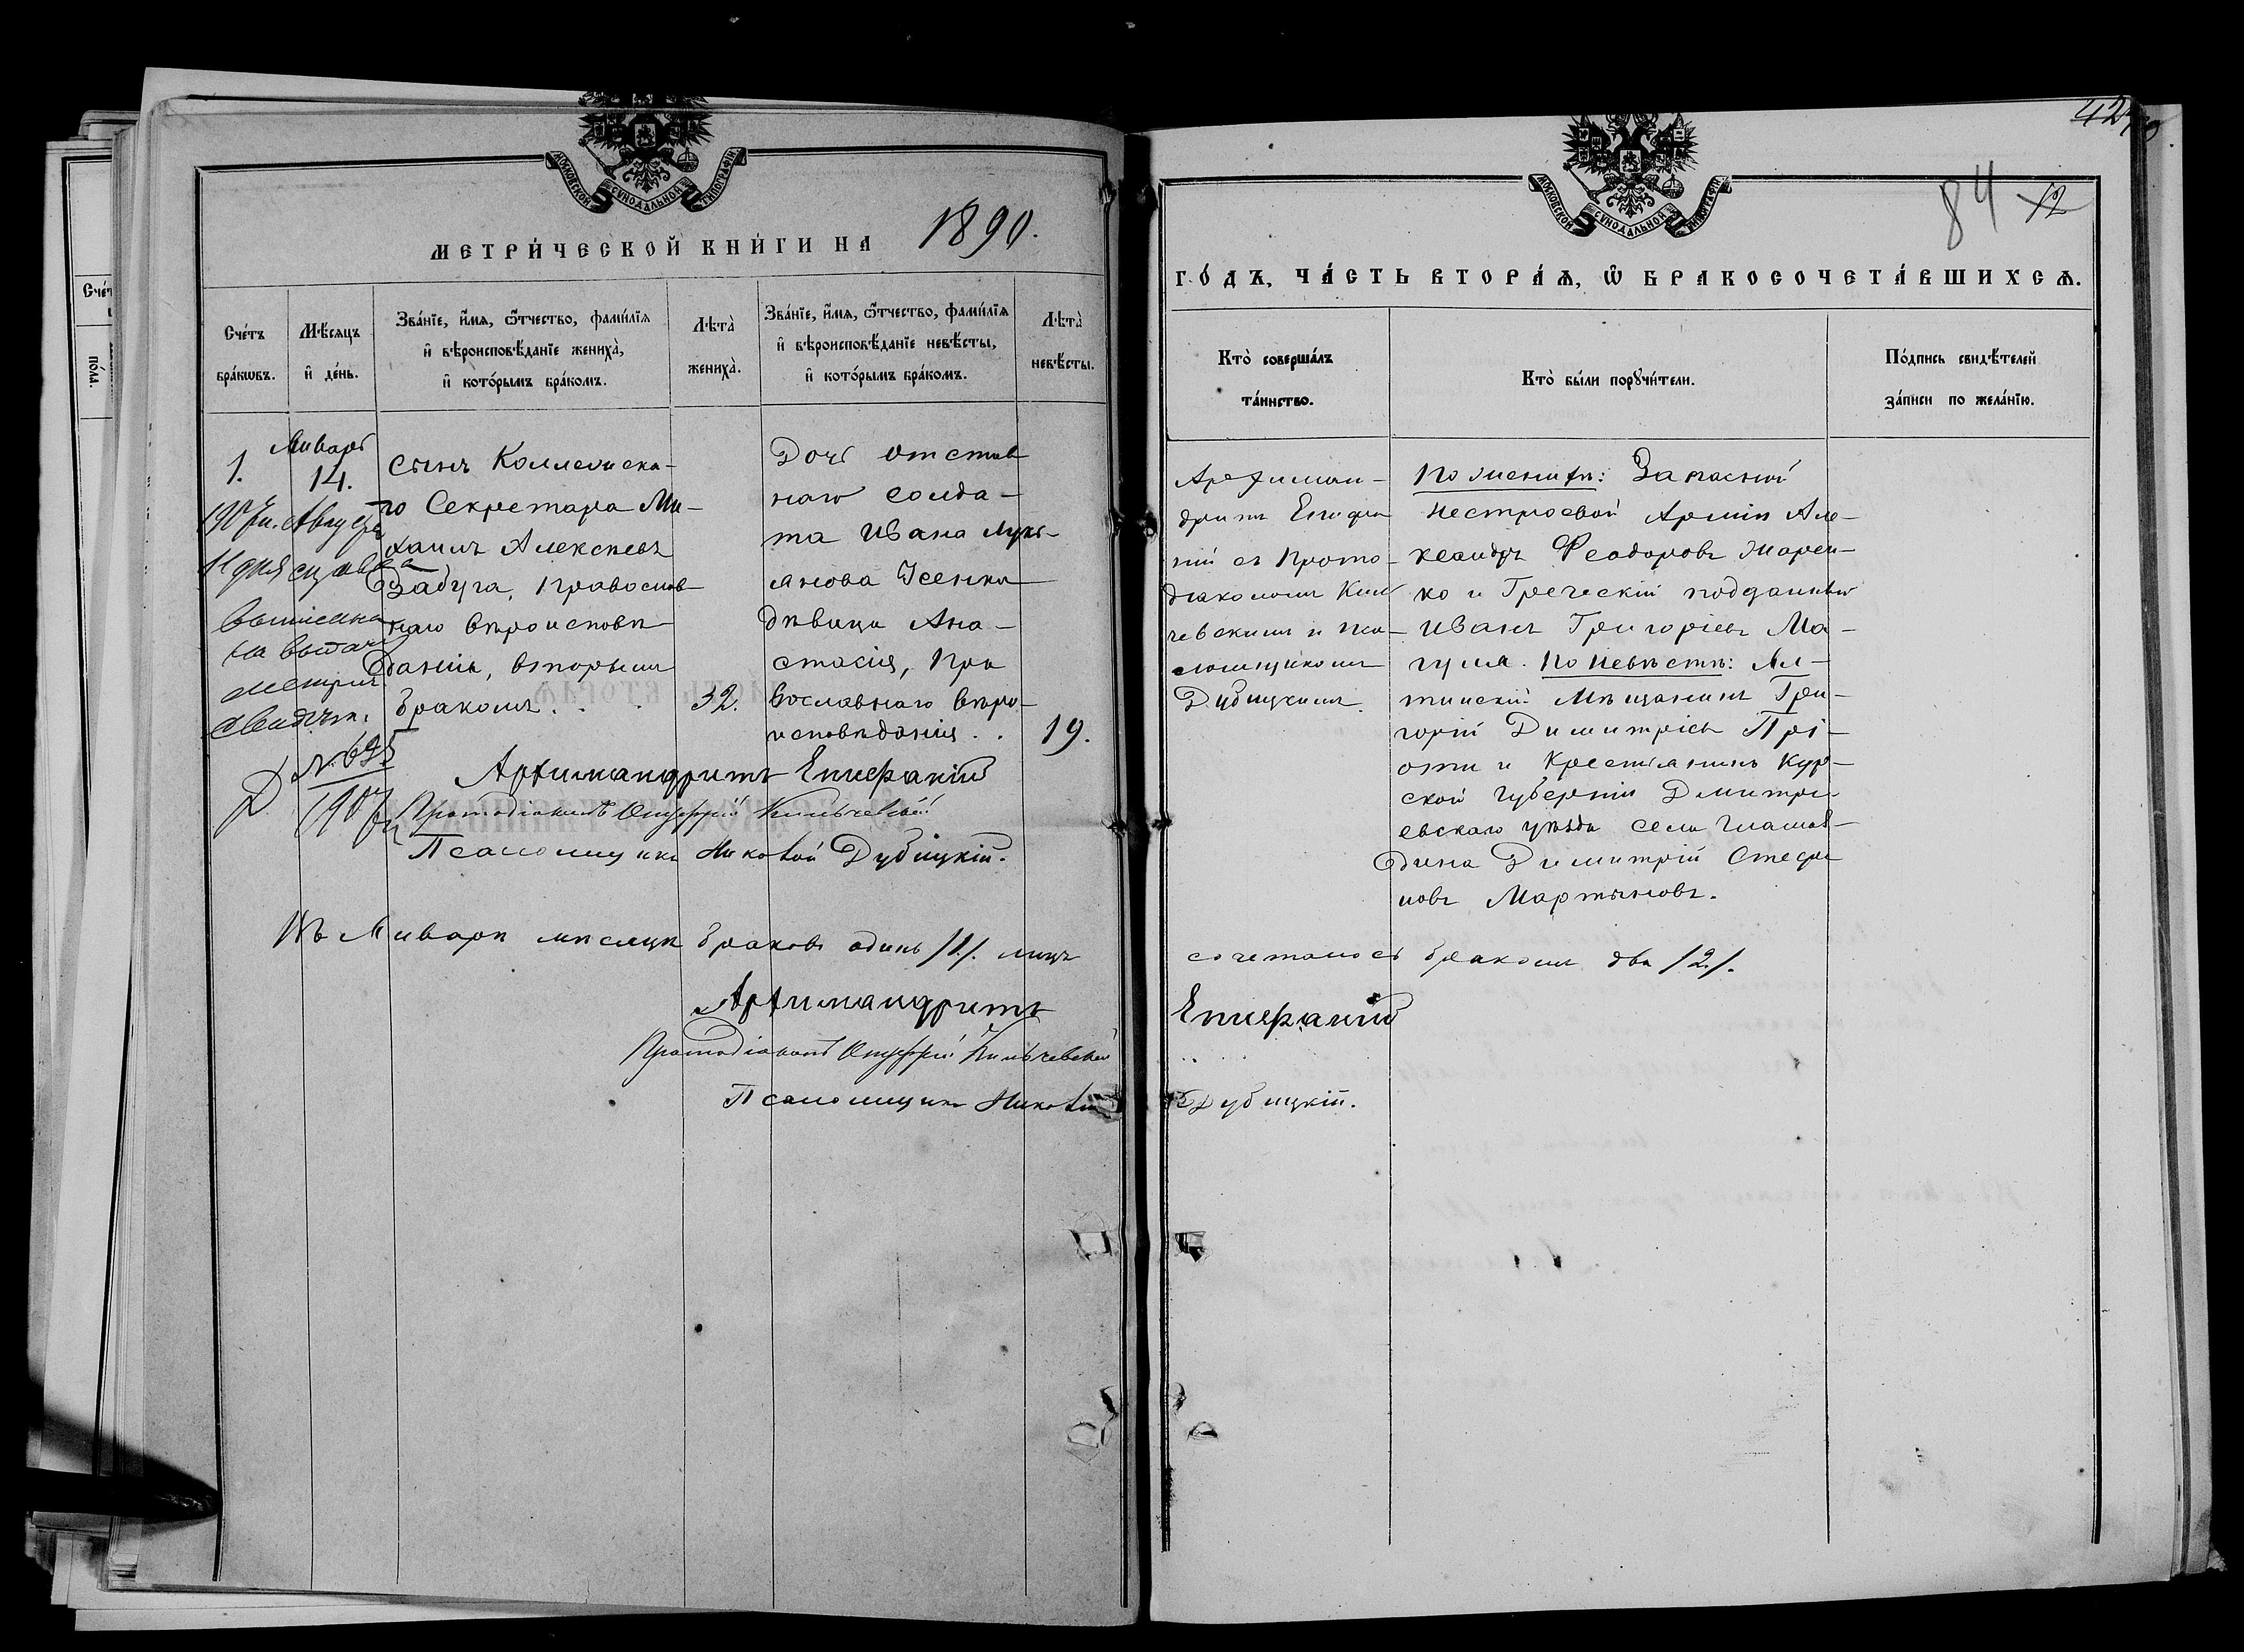 МОСКОВСКОЙ СѴНОДАЛЬНОЙ ТИПОГРАФІИ
МЕТРИ́ЧЕСКОЙ КНИ́ГИ НА 1890.
Сче́тъ бра́кѡвъ.
Мѣ́сяцъ и҆ де́нь.
Зва́нїе, и҆́мѧ, ѻ҆́тчество, фами́лїѧ и҆ вѣроисповѣ́данїе жениха̀, и҆ кото́рымъ бра́комъ.
Лѣта̀ жениха̀.
Зва́нїе, и҆́мѧ, ѻ҆́тчество, фами́лїѧ и҆ вѣроисповѣ́данїе невѣ́сты, и҆ кото́рымъ бра́комъ.
Лѣта̀ невѣ́сты.
1.
Январь
14.
1907 г. Августа
11 дня
выписка
на выдачу
метрич.
свидѣт.
№ 695
1907 г.
Сынъ Коллежска-
го Секретаря Ми-
хаилъ Алексѣевъ
Забуга, православ-
наго вѣроисповѣ-
данія, вторымъ
бракомъ . . .
32.
Дочь отстав
наго солда-
та Ивана Лукь-
янова Усенка
дѣвица Ана-
стасія, Пра
вославнаго вѣро-
исповѣданія . .
19.
Архимандритъ Епифаній
Протодіаконъ Онуфрій Кильчевскій
Псаломщикъ Николай Дубицкій.
Въ Январѣ мѣсяцѣ браковъ одинъ /1./. лицъ
Архимандритъ
Протодіаконъ Онуфрій Кильчевскій
Псаломщикъ Николай
МОСКОВСКОЙ СѴНОДАЛЬНОЙ ТИПОГРАФІИ
84
12
ГО́ДЪ, ЧА́СТЬ ВТОРА́Ѧ, Ѽ БРАКОСОЧЕТА́ВШИХСѦ.
Кто̀ соверша́лъ та́инство.
Кто̀ бы́ли порꙋчи́тели.
По́дпись свидѣ́телей за́писи по жела́нїю.
Архиман-
дритъ Епифа
ній съ Прото-
діакономъ Киль
чевскимъ и Пса-
ломщикомъ
Дубицкимъ.
По женихѣ: Запасный
нестроевой Арміи Але-
ксандръ Феодоровъ Жарен-
ко и Греческій подданный
Иванъ Григоріевъ Ма-
гула. По невѣстѣ: Ял-
тинскій Мѣщанинъ Гри-
горій Димитріевъ Прі-
оти и Крестьянинъ Кур-
ской губерніи Дмитрі-
евскаго уѣзда села
Димитрій Стефа
новъ Мартыновъ.
сочеталось бракомъ два /2./.
Епифаній
Дубицкій.